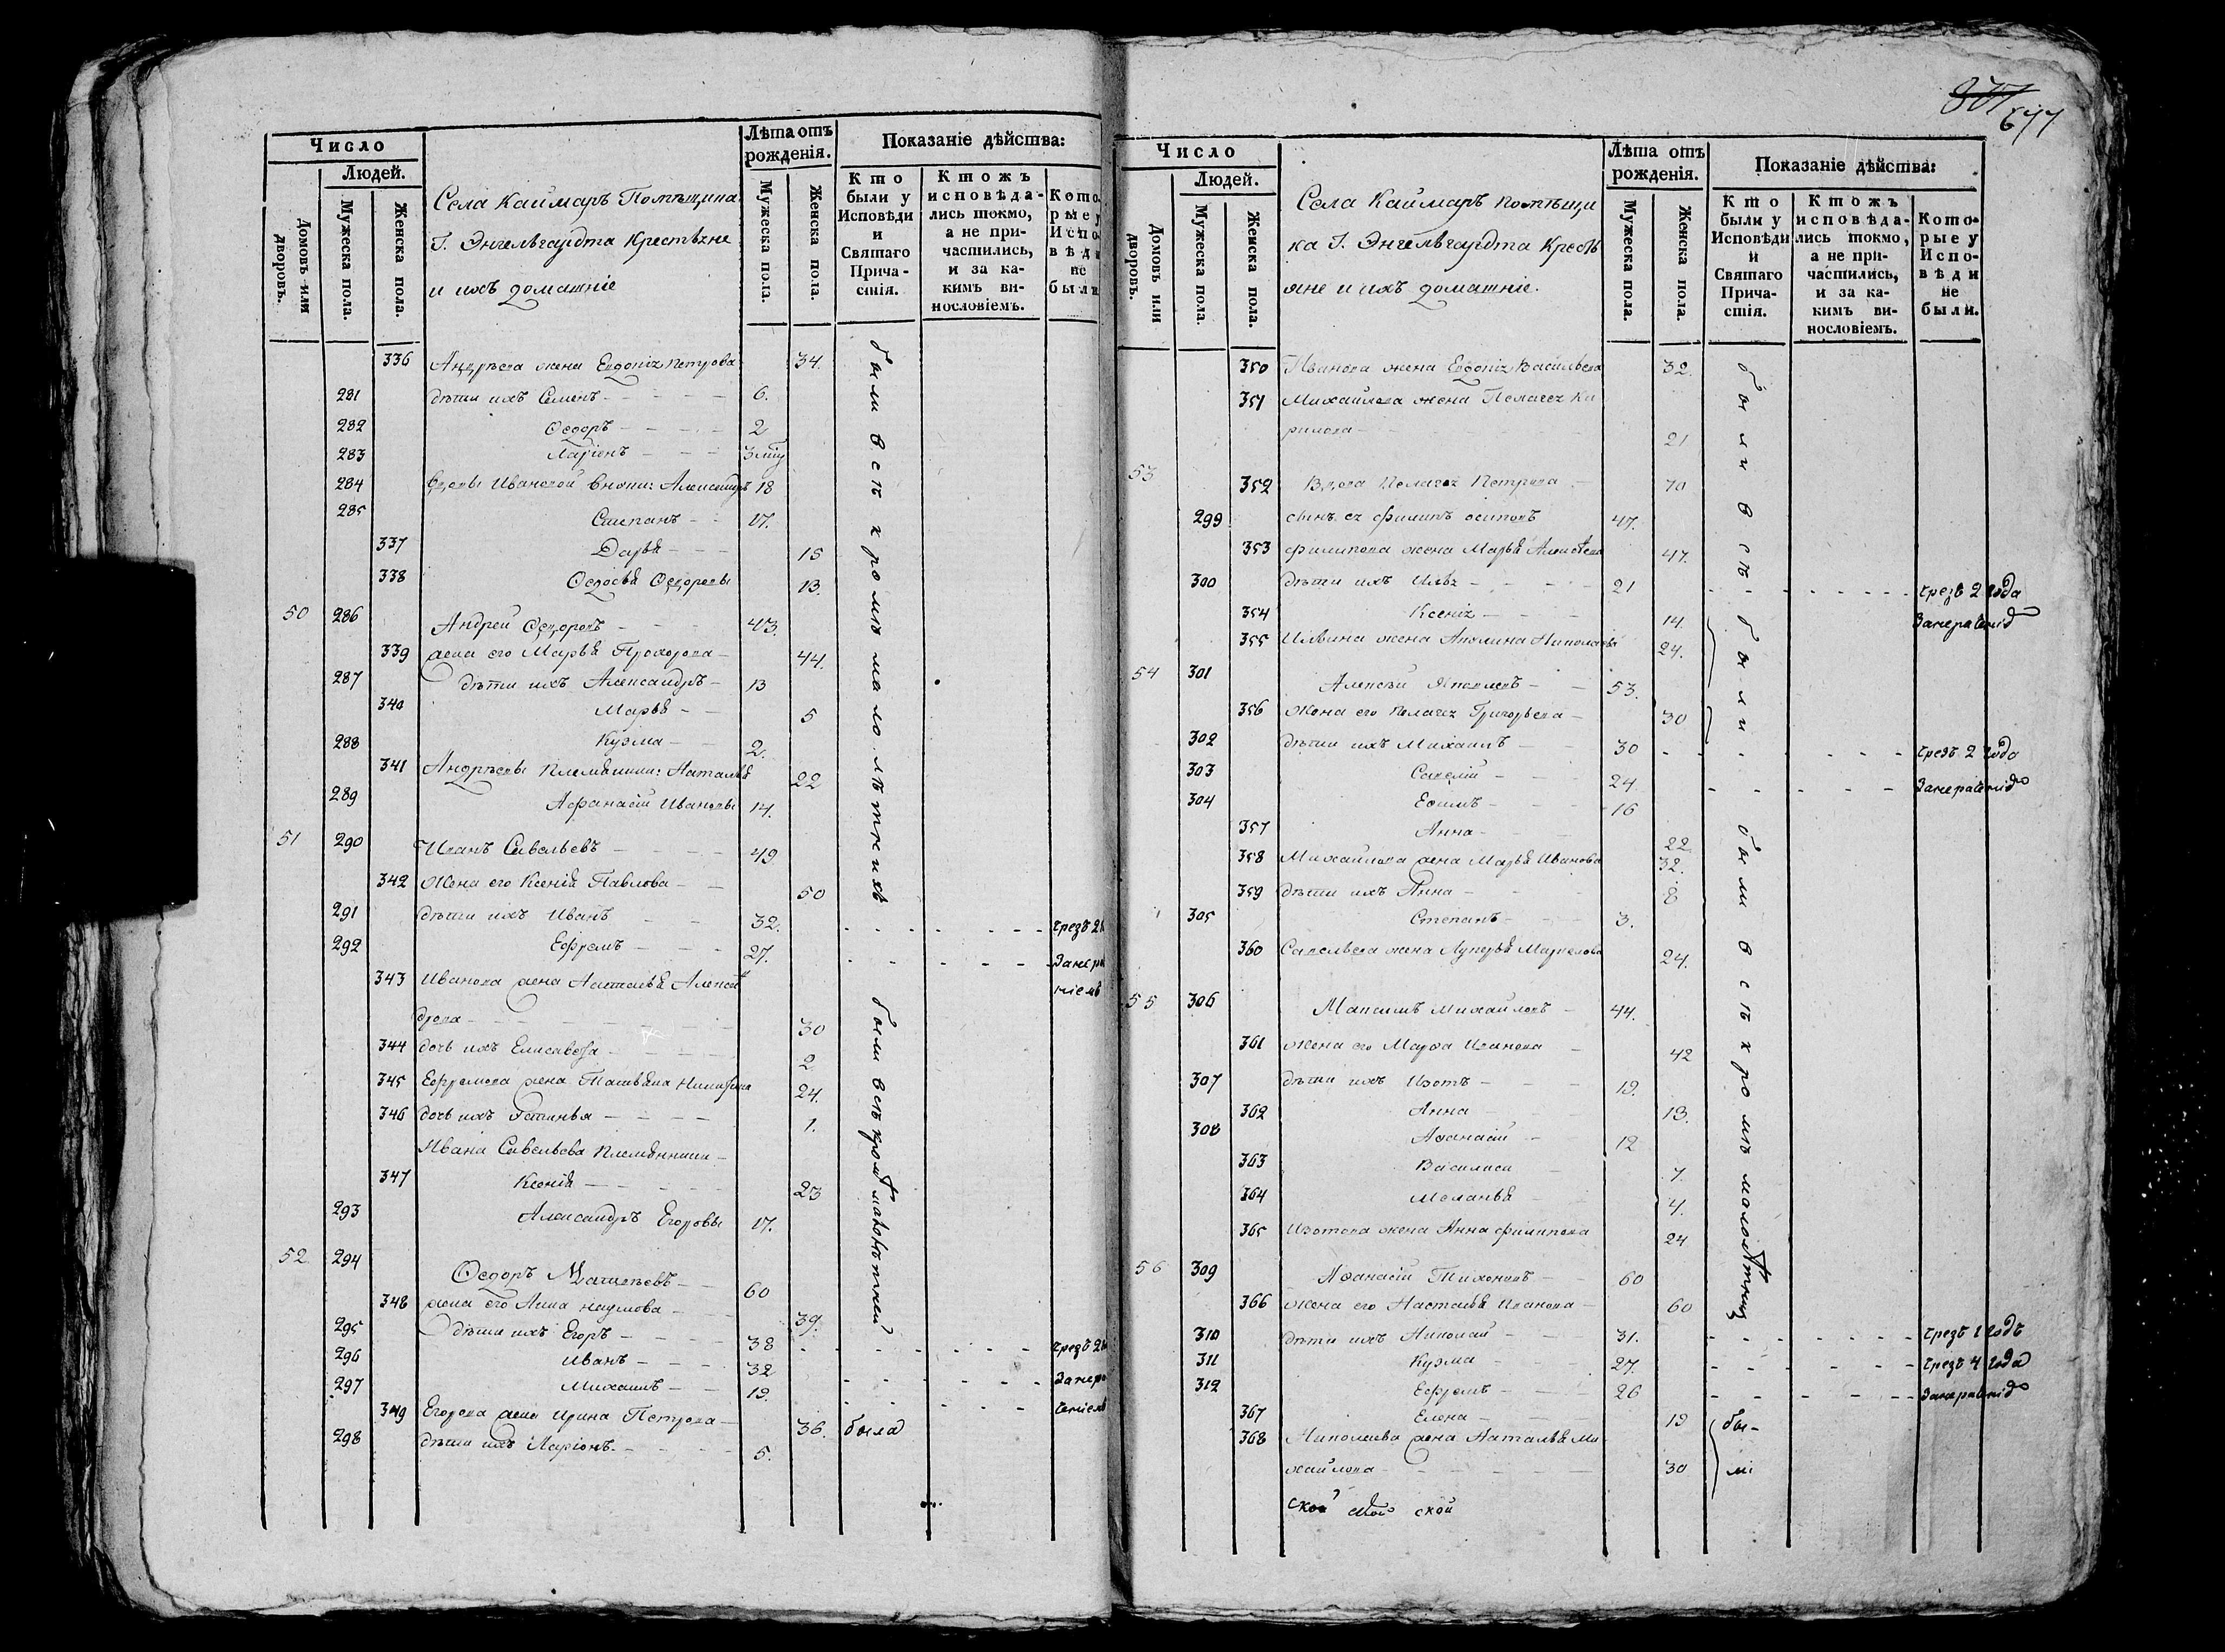 Число
Людей.
Домовъ или дворовъ.
Мужеска пола.
Женска пола.
Села Каймаръ Помѣщика
Г. Энгельгардта Крестьяне
и ихъ домашніе
Лѣта отъ рожденія.
Мужеска пола.
Женска пола.
Показаніе дѣйства:
Кто были у Исповѣди и Святаго Причастія.
Ктожъ исповѣдались токмо, а не причастились, и за какимъ винословіемъ.
Которые у Исповѣди не были
336 Андрѣева жена Евдокія Петрова 34.
281 дѣти ихъ Семенъ 6.
282 Ѳедоръ 2
283 Ларіонъ 3
284 Вдовы Ивановой внуки: Александръ 18
285 Степанъ 17.
337 Дарья 15
338 Ѳедосья Ѳедоровы 13.
были всѣ кромѣ малолѣтнихъ
50 286 Андрей Ѳедоровъ 43.
339 жена его Марья Прохорова 44.
287 дѣти ихъ Александръ 13
340 Марья 5
288 Кузма 2.
341 Андрѣевы племянники: Наталья 22
289 Афанасій Ивановы 14.
51 290 Иванъ Савельевъ 49
342 Жена его Ксенія Павлова 50
291 дѣти ихъ Иванъ 32. чрезъ 2
292 Ефремъ 27.
343 Иванова жена Настасья Алексан
дрова 30
344 дочь ихъ Елисавета 2
345 Ефремова жена Татьяна Никифорова 24.
346 дочь ихъ Устинья 1.
Ивана Савельева племянники
347 Ксенія 23
293 Александръ Егоровы 17.
были всѣ кромѣ малолѣтней
52 294 Ѳедоръ 60
348 жена его Анна Наумова 39.
295 дѣти ихъ Егоръ 38 чрезъ 2
296 Иванъ 32
297 Михаилъ 19.
349 Егорова жена Ирина Петрова 36. была
298 дѣти ихъ Ларіонъ 5.
677
Число
Людей.
Домовъ или дворовъ.
Мужеска пола.
Женска пола.
Села Каймаръ помѣщи
ка Г. Энгельгардта Кресть
яне и ихъ домашніе.
Лѣта отъ рожденія.
Мужеска пола.
Женска пола.
Показаніе дѣйства:
Кто были у Исповѣди и Святаго Причастія.
Ктожъ исповѣдались токмо, а не причастились, и за какимъ винословіемъ.
Которые у Исповѣди не были.
350 Иванова жена Евдокія Васильева 32.
351 Михайлова жена Пелагея Ки
рилова 21
были всѣ
53 352 Вдова Пелагея Петрова 70
299 сынъ ея Филипъ Осиповъ 47.
353 Филипова жена Марья Алексѣева 47.
300 дѣти ихъ Илья 21 чрезъ 2 года
354 Ксенія 14. Занерадѣніе
355 Ильина жена Акулина Николаева 24.
были
54 301 Алексѣй Яковлевъ 53.
356 Жена его Пелагея Григорьева 30
302 дѣти ихъ Михаилъ 30 чрезъ 2 года
303 Савелій 24 Занерадѣніе
304 Ефимъ 16
357 Анна 22
358 Михайлова жена Марья Иванова 32.
359 дѣти ихъ Анна 8
305 Степанъ 3.
360 Савельева жена Лукерья Маркелова 24.
были всѣ кромѣ малолѣтныхъ
55 306 Максимъ Михайловъ 44.
361 Жена его Марфа Иванова 42
307 дѣти ихъ Изотъ 19.
362 Анна 13.
308 Афанасій 12
363 Василиса 7.
364 Меланья 4.
365 Изотова жена Анна Филипова 24
56 309 Афанасій Тихоновъ 60
366 Жена его Настасья Иванова 60
310 дѣти ихъ Николай 31. чрезъ 1 годъ
311 Кузма 27. чрезъ 4 года
312 Ефремъ 26 Занерадѣніе
367 Елена 19 бы-
368 Николаева жена Наталья Ми
хайлова 30 ли
ской ской ской